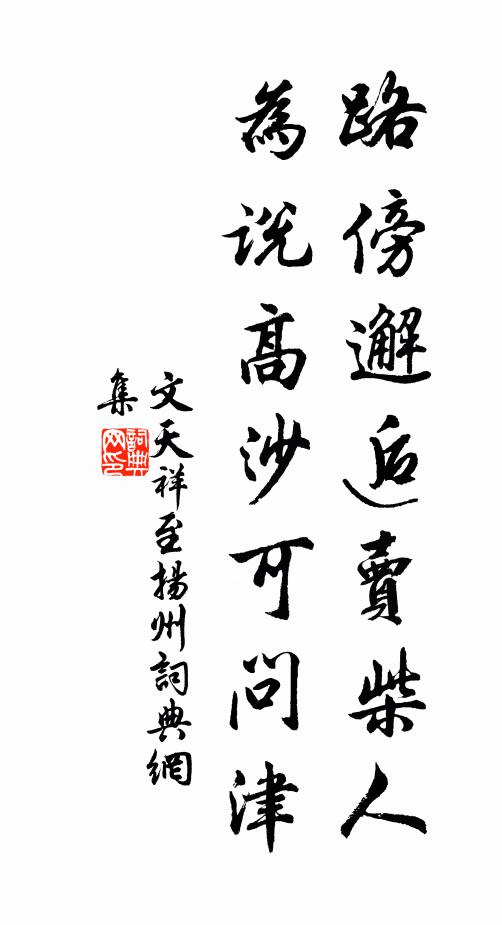 路傍邂逅賣柴人
為說高沙可問津
文天祥至揚州詞典網
集
詞典網印